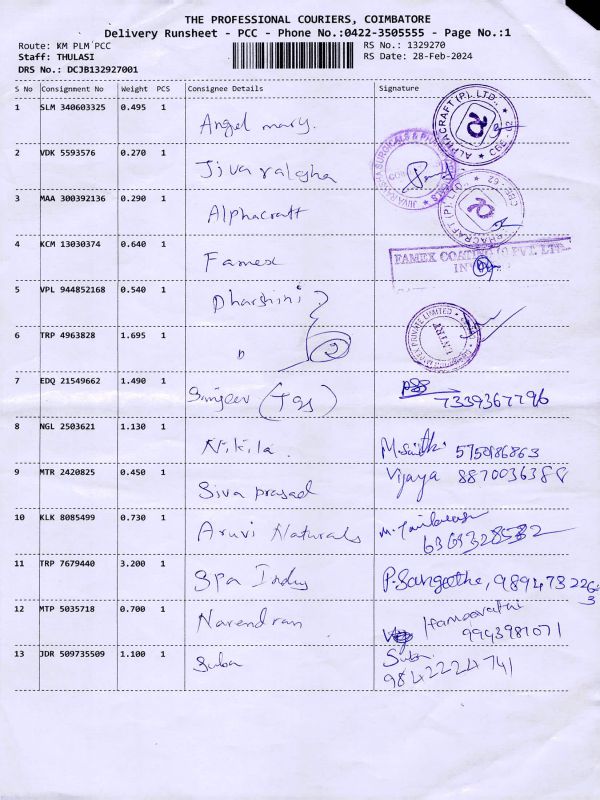 THE PROFESSIONAL COURIERS, COIMBATORE
Delivery Runsheet - PCC - Phone No.:0422-3505555 - Page No.:1
Route: KM PLM PCC
RS No.: 1329270
Staff: THULASI
RS Date: 28-Feb-2024
DRS No.: DCJB132927001
S No Consignment No Weight PCS Consignee Details Signature
1 SLM 340603325 0.495 1 Angel mary. ALPHACRAFT (P). LTD. CBE - 02
2 VDK 5593576 0.270 1 Jivaraksha
3 MAA 300392136 0.290 1 Alphacraft ALPHACRAFT (P). LTD. CBE - 02
4 KCM 13030374 0.640 1 Famex FAMEX PVT. LTD.
5 VPL 944852168 0.540 1 Dharshini
6 TRP 4963828 1.695 1 " 2 PRIVATE LIMITED ENTRY
7 EDQ 21549662 1.490 1 Sanjeev (TGS) 7339367796
8 NGL 2503621 1.130 1 Nikila.
9 MTR 2420825 0.450 1 Siva prasad Vijaya 8870036388
10 KLK 8085499 0.730 1 Aruvi Naturals
11 TRP 7679440 3.200 1 Spa Indus P. Sangeetha,
12 MTP 5035718 0.700 1 Narendran 9943981071
13 JDR 509735509 1.100 1 Suba Suba 9842224741